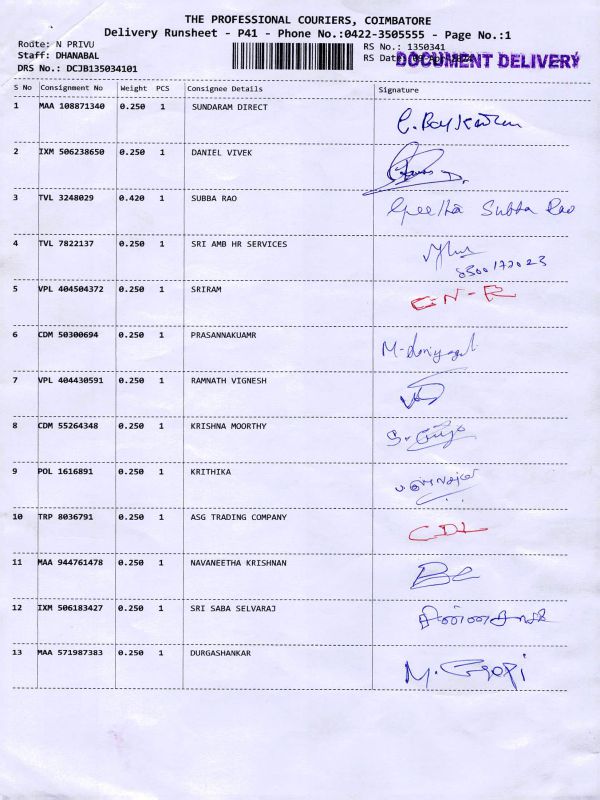 THE PROFESSIONAL COURIERS, COIMBATORE
Delivery Runsheet - P41 - Phone No.:0422-3505555 - Page No.:1
Route: N PRIVU
RS No.: 1350341
Staff: DHANABAL
RS Date: 09 Apr
DOCUMENT DELIVERY
DRS No.: DCJB135034101
S No Consignment No Weight PCS Consignee Details Signature
1 MAA 108871340 0.250 1 SUNDARAM DIRECT
2 IXM 506238650 0.250 1 DANIEL VIVEK
3 TVL 3248029 0.420 1 SUBBA RAO Geetha Subba Rao
4 TVL 7822137 0.250 1 SRI AMB HR SERVICES
5 VPL 404504372 0.250 1 SRIRAM
6 CDM 50300694 0.250 1 PRASANNAKUAMR
7 VPL 404430591 0.250 1 RAMNATH VIGNESH
8 CDM 55264348 0.250 1 KRISHNA MOORTHY
9 POL 1616891 0.250 1 KRITHIKA
10 TRP 8036791 0.250 1 ASG TRADING COMPANY CDL
11 MAA 944761478 0.250 1 NAVANEETHA KRISHNAN
12 IXM 506183427 0.250 1 SRI SABA SELVARAJ
13 MAA 571987383 0.250 1 DURGASHANKAR M. Gopi